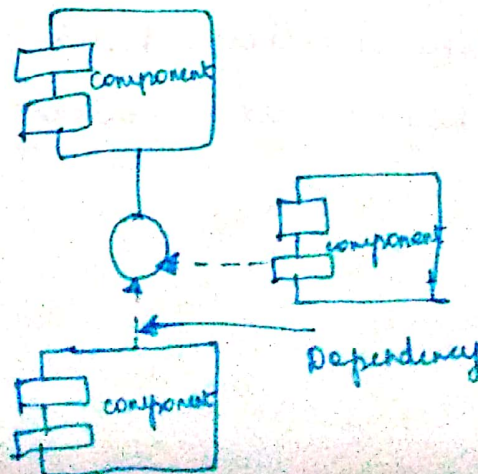 component
component
Dependency
component